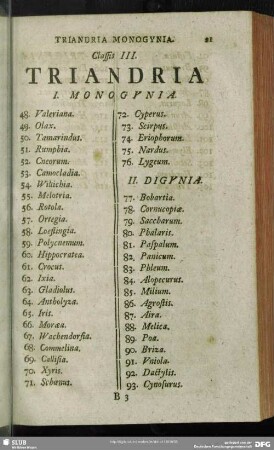 TRIANDRIA MONOGYNIA. 21
Classis III.
TRIANDRIA
I. MONOGYNIÆ.
48. Valeriana.
49. Olax.
50. Tamarindus.
51. Rumphia.
52. Cneorum.
53. Comocladia.
54. Willichia.
55. Melotria.
56. Rotola.
57. Ortegia.
58. Loeflingia.
59. Polycnemum.
60. Hippocratea.
61. Crocus.
62. Ixia.
63. Gladiolus.
64. Antholyza.
65. Iris.
66. Moræa.
67. Wachendorfia.
68. Commelina.
69. Callisia.
70. Xyris.
71. Schœnus.
72. Cyperus.
73. Scirpus.
74. Eriophorum.
75. Nardus.
76. Lygeum.
II. DIGYNIÆ.
77. Bobartia.
78. Cornucopiæ.
79. Saccharum.
80. Phalaris.
81. Paspalum.
82. Panicum.
83. Phleum.
84. Alopecurus.
85. Milium.
86. Agrostis.
87. Aira.
88. Melica.
89. Poa.
90. Briza.
91. Uniola.
92. Dactylis.
93. Cynosurus.
B 3
SLUB